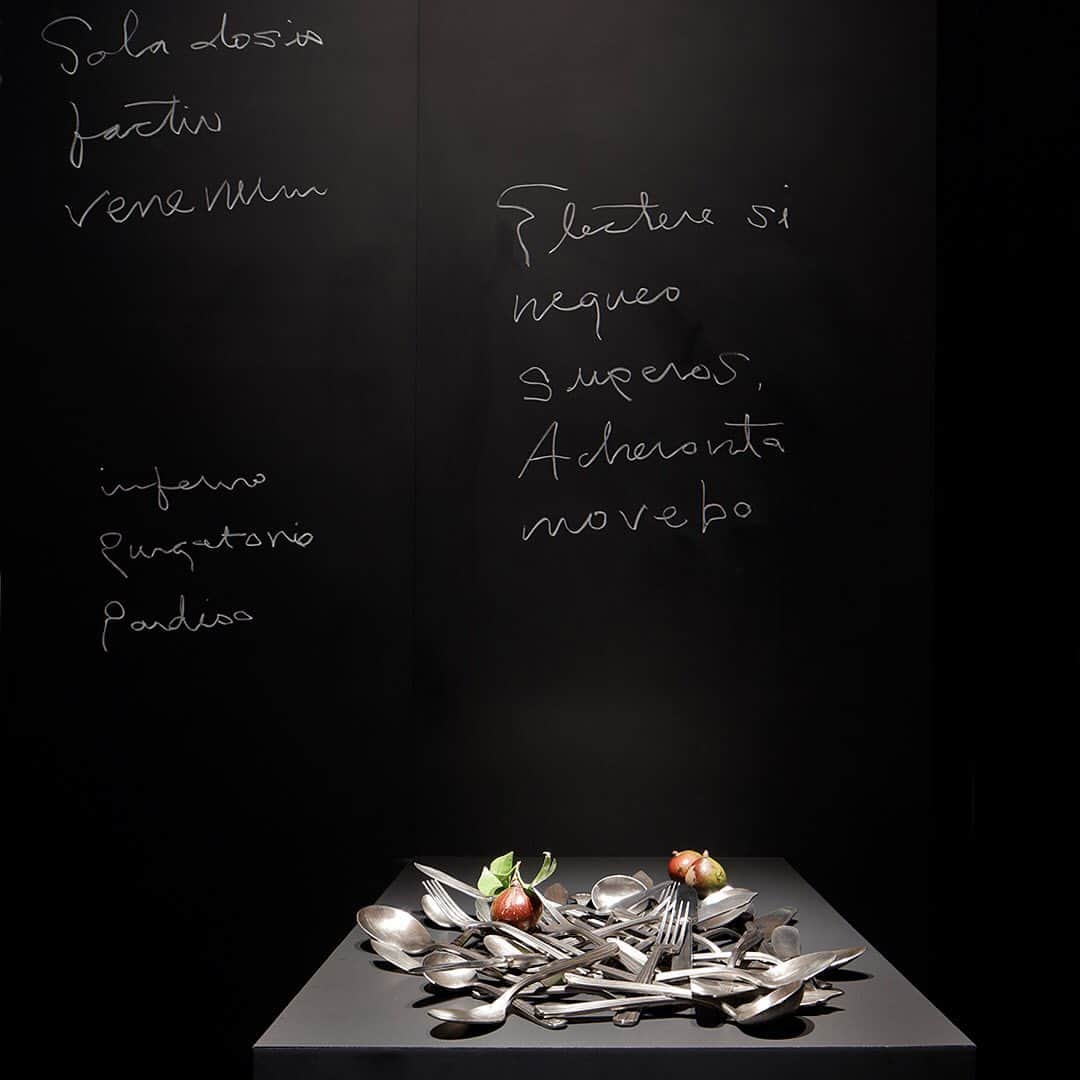 Sola dosis
factio
venenum
Flectere si
nequeo
superos,
Acheronta
movebo
inferno
purgatorio
Pardiso